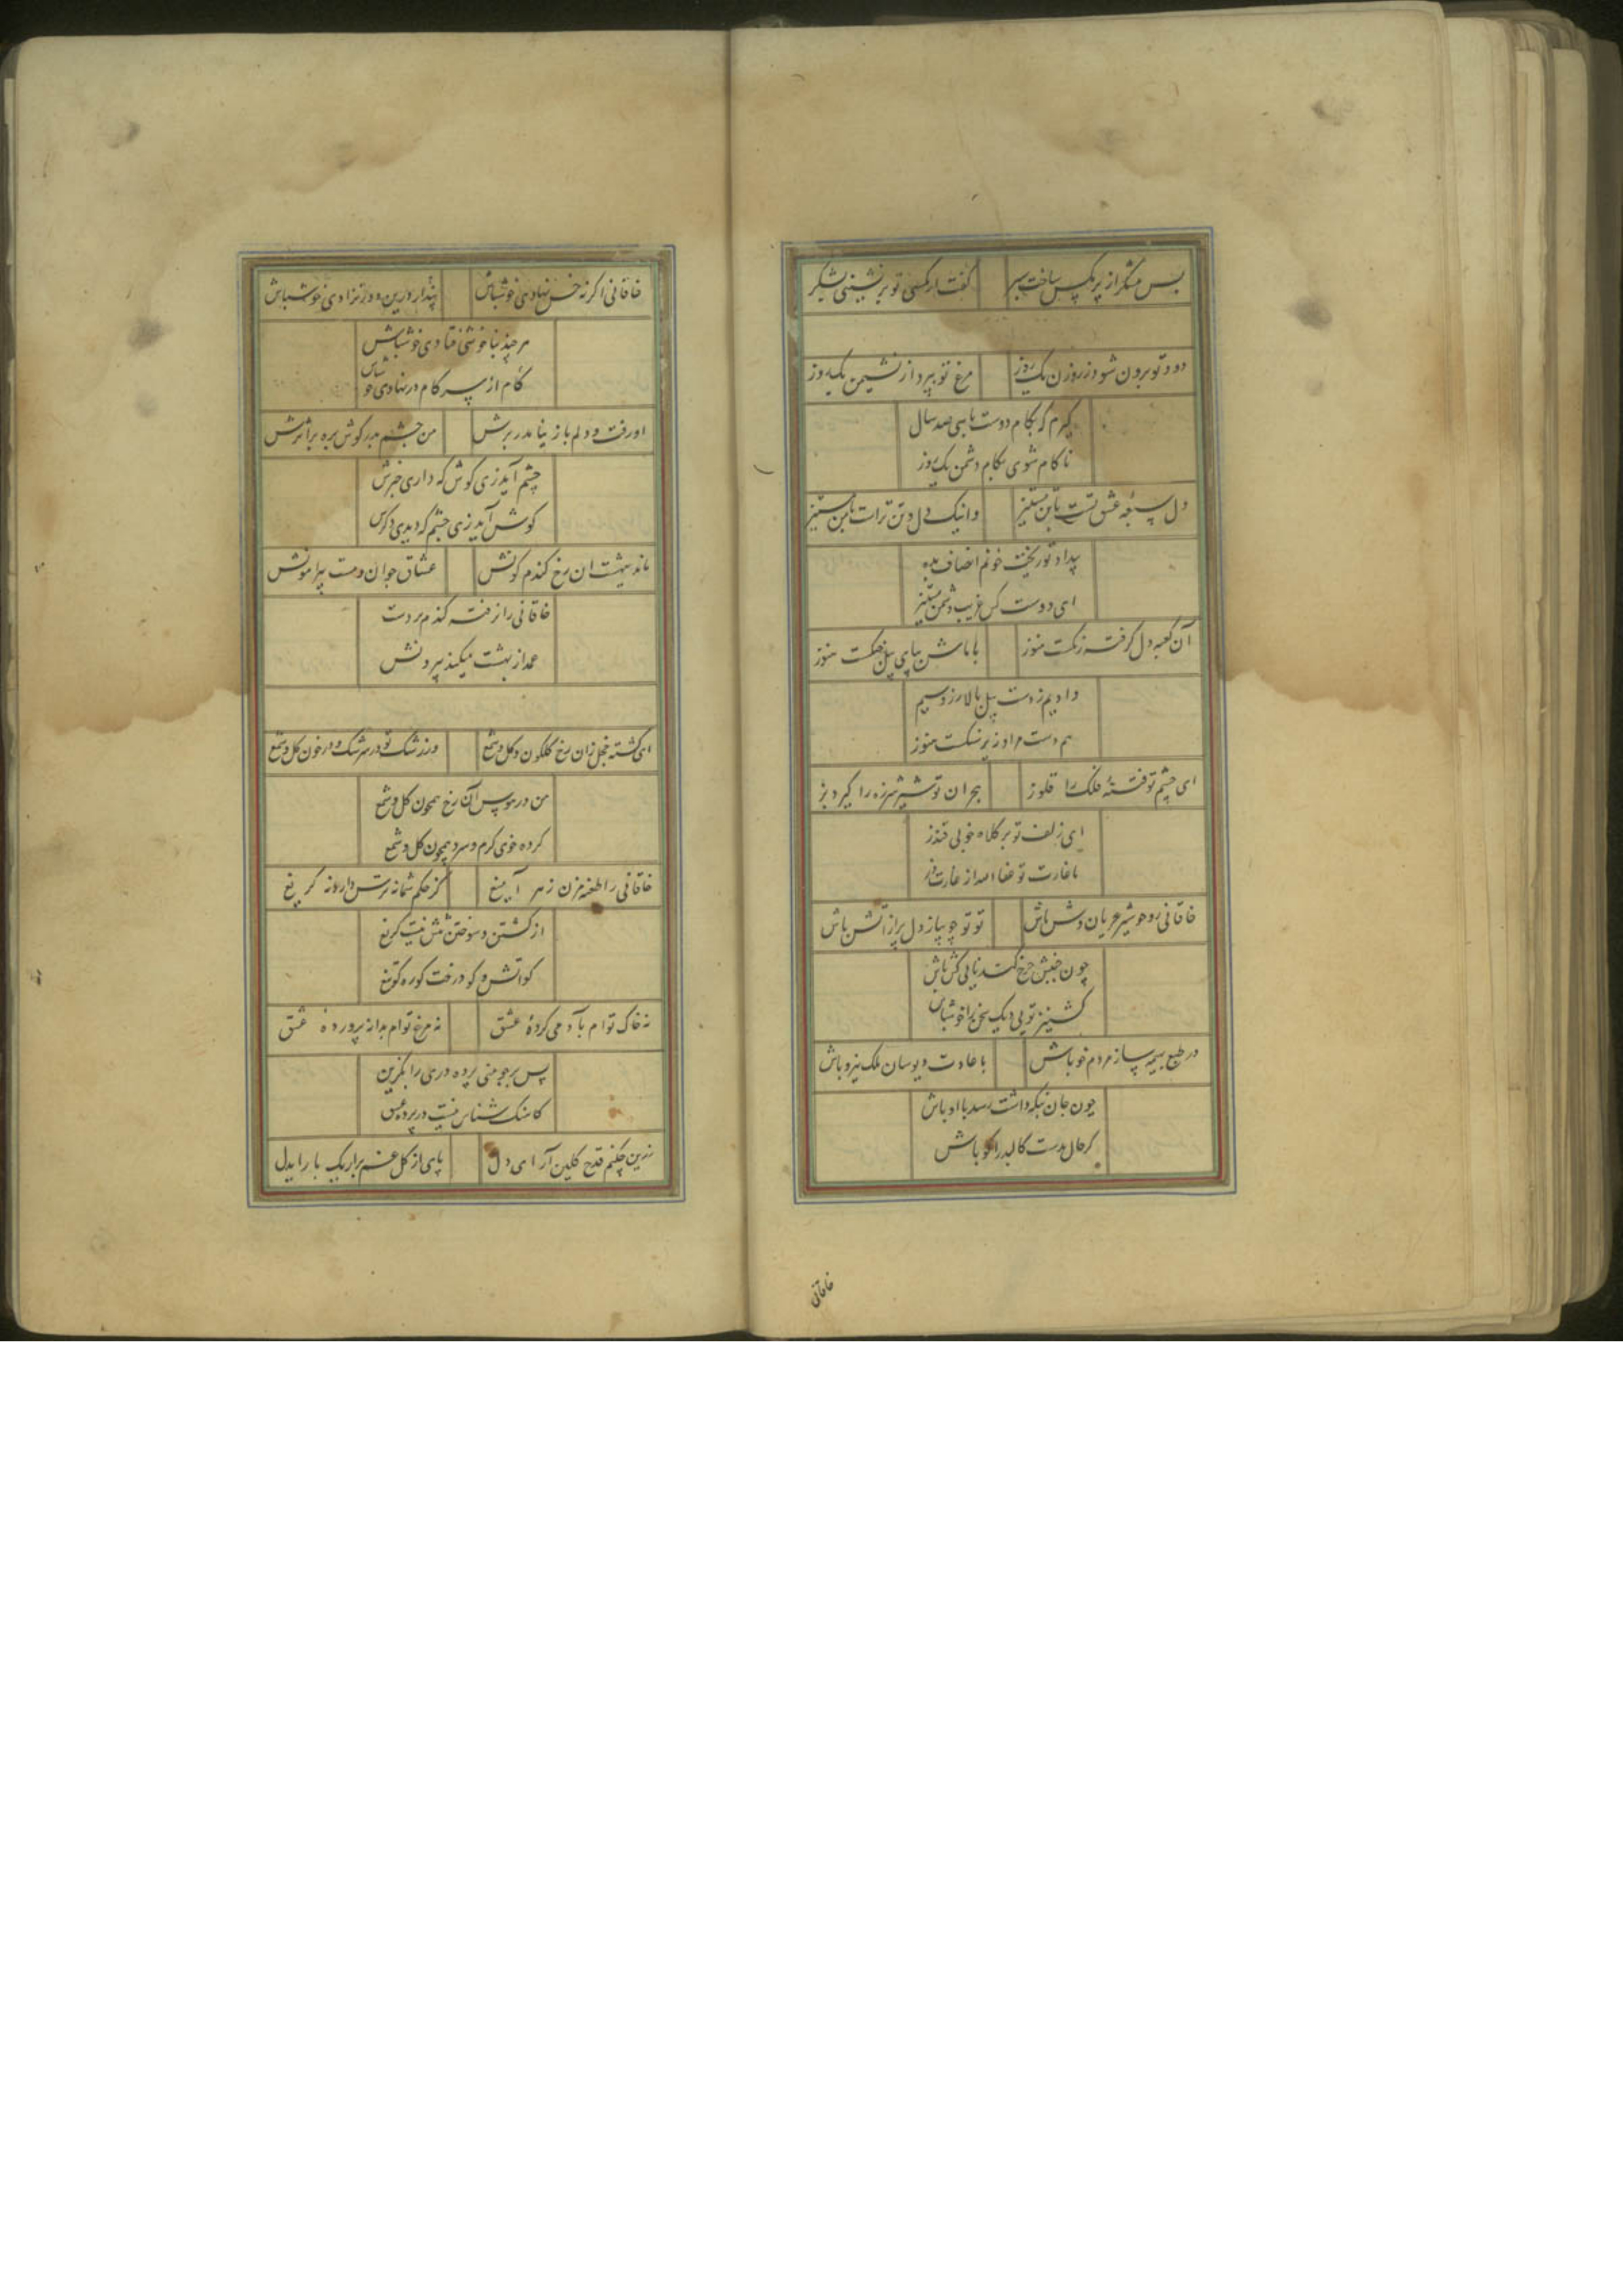 بس شکر از پر مکس ساخت سپر
گفت ار مکسی تو بر نشینی بشکر
دود تو برون شود ز روزن یک روز
مرغ تو بپرد از نشیمن یک روز
گیرم که بکام دوست باسی صد سال
ناکام شوی بکام دشمن یک روز
دل سغبه عشق تست با تن مستیز
وانیک دل و تن تراست با من مستیز
بیداد تو ریخت خونم انصاف بده
ای دوست کش غریب دشمن مستیز
آن کعبه دل گرفته رنکست هنوز
با ماش بپای پیل جنکست هنوز
دادیم ز دست پیل بالا زر و سیم
هم دست مراد زیر سنکست هنوز
ای چشم تو فتنهٔ فلک را قلوز
هجران تو شیر شرزه را گیرد بز
ای زلف تو بر کلاه خوبی قندز
با غارت تو عفا الله از غارت غز
خاقانی رو جو شیر عریان وش باش
تو تو چو پیاز و دل پر از آتش باش
چون جنبش چرخ کندنایی کش باش
کشنیز تویی دیک سخن را خوشباش
در طبع بهیمه سار مردم خو باش
با عادت دیوسان ملک نیرو باش
چون جان نکه داشت رسد با او باش
گر حال بدست کالبد را کو باش
خاقانی
خاقانی اگر نه خس نهادی خوشباش
پندار درین دور نزادی خوشباش
هر چند بناخوشی فتادی خوشباش
گام از سر کام در نهادی خوشباش
او رفت و دلم باز نیامد ز برش
من چشم بره گوش بره بر اثرش
چشم آید زی گوش که داری خبرش
گوش آید زی چشم که دیدی دکرش
ماند ببهشت ان رخ گندم گونش
عشاق چو آدمست پیرامونش
خاقانی را ز فتنه گندم بر دست
عمدا ز بهشت میکند بیرونش
ای گشته خجل زان رخ گلگون گل و شمع
وز رشک تو در سرشک و در خون گل و شمع
من در هوس آن رخ همچون گل و شمع
کرده خوی گرم و سرد همچون گل و شمع
خاقانی را طعنه مزن زهر آ میغ
کز حکم شما نه ترس دارد نه گریغ
از کشتن و سوختن تنش نیست گریغ
کو آتش و کو درخت کو ره کو تیغ
نه خاک توام بآدمی کردهٔ عشق
نه مرغ توام بدانه پرورده عشق
پس بر جو منی پرده دری را بگزین
کاهنگ شناس نیست در پرده عشق
زرین چکنم قدح گلین آر ای دل
پای از گل غم برار یک بار ای دل